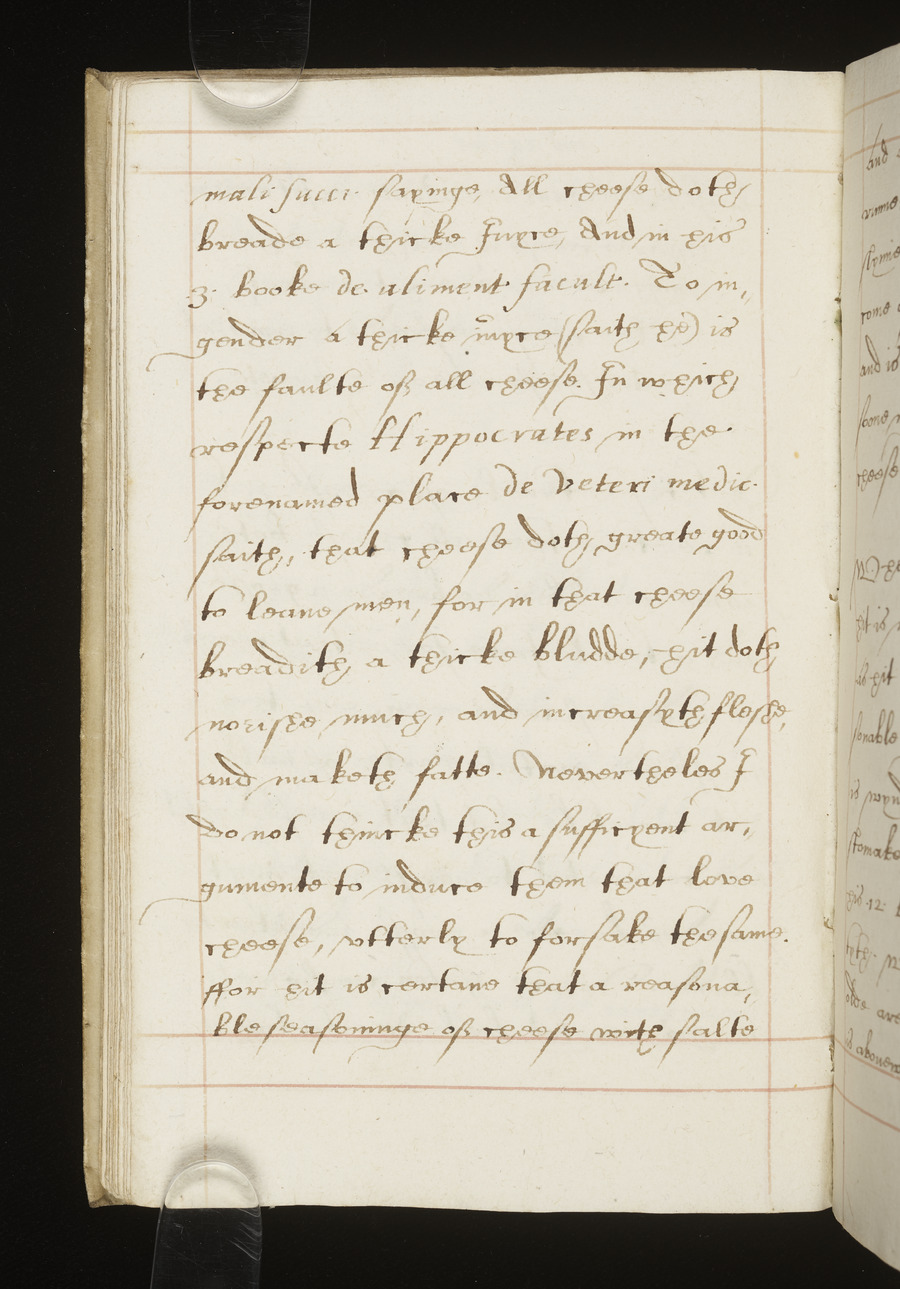 mali succi. sayinge, All cheese doth
breade a thicke Iuyce, And in his
3. booke de aliment facult. To in,
gender a thicke iuyce (saith he) is
the faulte of all cheese. In which
respecte Hippocrates in the
forenamed place de Veteri medic.
saith, that cheese doth greate good
to leane men, for in that cheese
breadith a thicke bludde, hit doth
norishe much, and increasyth fleshe,
and maketh fatte. Nevertheles I
do not thincke this a sufficyent ar,
gumente to induce them that love
cheese, vtterly to forsake thesame.
ffor hit is certane that a reasona,
ble seasoninge of cheese with salte
and